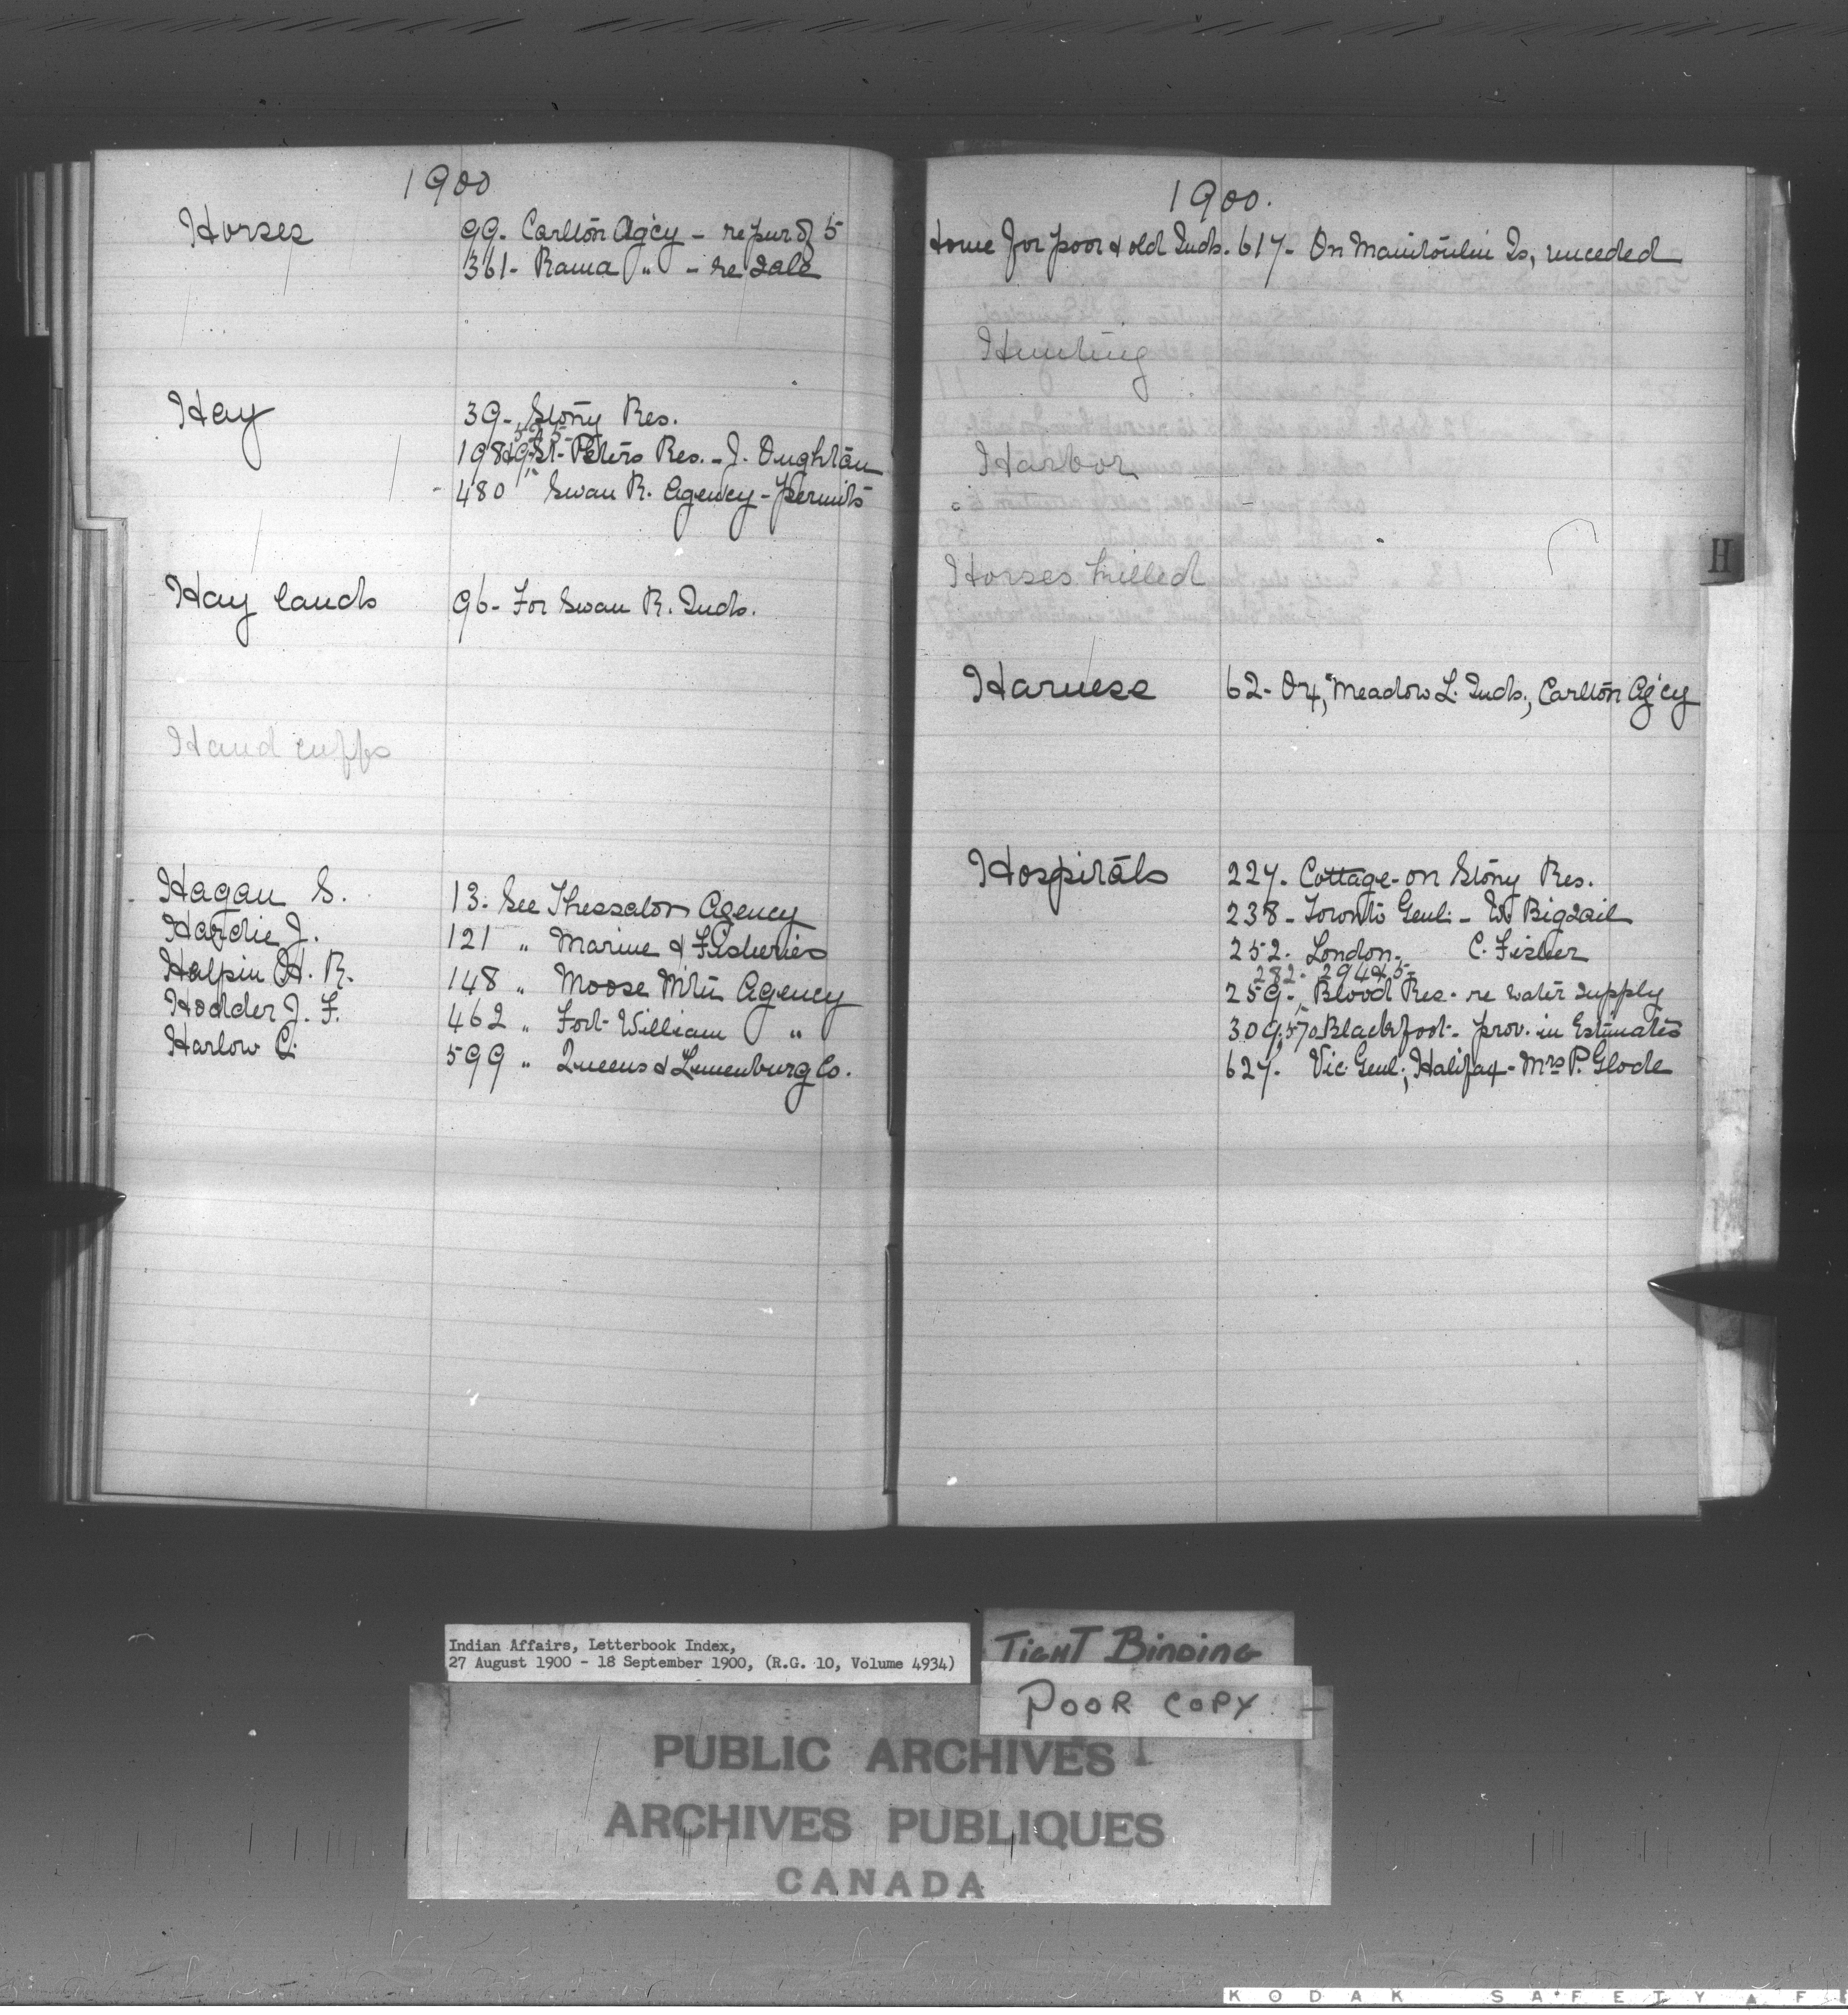 1900
Horses 99. Carlton Ag'cy - re pur of 5
361 - Rama " - re sale
Hay 39 - Stony Res.
525
198, 49, St. Peters Res. - J. Oughtau
480 " Swan R. Agency - permits
Hay lands 96 - For Swan R. Inds.
Hand cuffs
Hagan S. 13. See Thessalon Agency
Hardie J. 121 " Marine & Fisheries
Halpin H. R. 148 " Moose Mtn Agency
Hodder J. F. 462 " Fort William "
Harlow C. 599 " Queens & Lunenburg Co.
1900.
Home for poor & old Inds. 617 - On Manitoulin Is, unceded
Hunting
Harbor
Horses killed
Harness 62 - Ox, Meadow L. Inds., Carlton Ag'cy
Hospitals 227. Cottage - on Stony Res.
238 - Toronto Genl. - W. Bigsail
252. London. C. Fisher
282. 294 & 5
259., Blood Res. re water supply
309, 570 Blackfoot - prov. in Estimates
627. Vic. Genl., Halifax - Mrs P. Glode
H
Indian Affairs, Letterbook Index,
27 August 1900 - 18 September 1900, (R.G. 10, Volume 4934)
TIGHT BINDING
POOR COPY
PUBLIC ARCHIVES
ARCHIVES PUBLIQUES
CANADA
KODAK SAFETY F